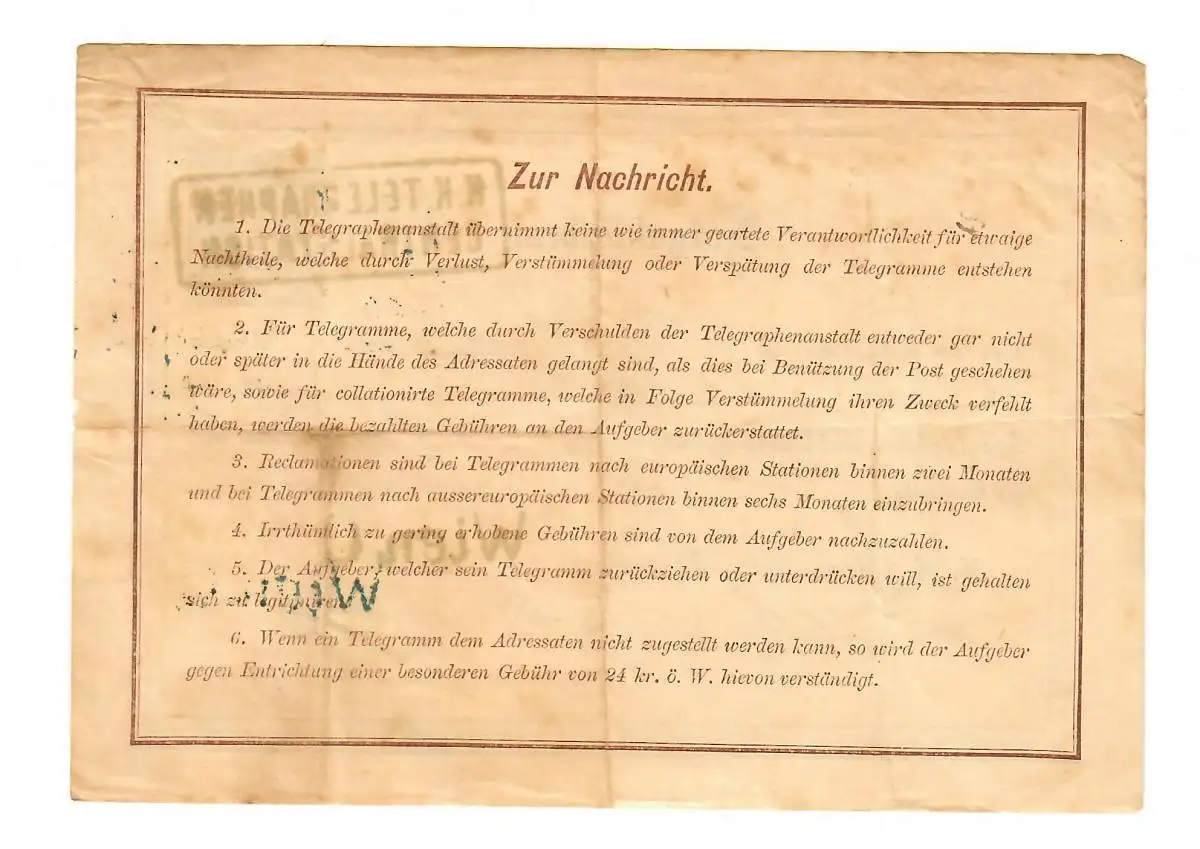 Zur Nachricht.
1. Die Telegraphenanstalt übernimmt keine wie immer geartete Verantwortlichkeit für etwaige
Nachtheile, welche durch Verlust, Verstümmelung oder Verspätung der Telegramme entstehen
könnten.
2. Für Telegramme, welche durch Verschulden der Telegraphenanstalt entweder gar nicht
oder später in die Hände des Adressaten gelangt sind, als dies bei Benützung der Post geschehen
wäre, sowie für collationirte Telegramme, welche in Folge Verstümmelung ihren Zweck verfehlt
haben, werden die bezahlten Gebühren an den Aufgeber zurückerstattet.
3. Reclamationen sind bei Telegrammen nach europäischen Stationen binnen zwei Monaten
und bei Telegrammen nach aussereuropäischen Stationen binnen sechs Monaten einzubringen.
4. Irrthümlich zu gering erhobene Gebühren sind von dem Aufgeber nachzuzahlen.
5. Der Aufgeber, welcher sein Telegramm zurückziehen oder unterdrücken will, ist gehalten
sich zu legitimiren.
6. Wenn ein Telegramm dem Adressaten nicht zugestellt werden kann, so wird der Aufgeber
gegen Entrichtung einer besonderen Gebühr von 24 kr. ö. W. hievon verständigt.
K.K. TELEGRAPHEN
Wien